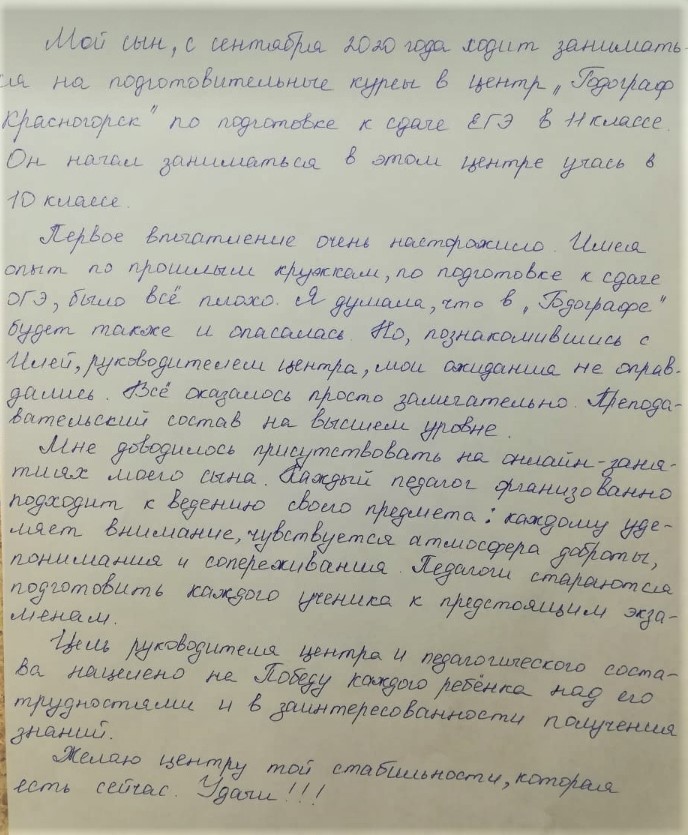 Мой сын, с сентября 2020 года ходит занимать-
ся на подготовительные курсы в центр „Годограф
Красногорск" по подготовке к сдаче ЕГЭ в 11 классе.
Он начал заниматься в этом центре учась в
10 классе.
Первое впечатление очень насторожило. Имея
опыт по прошлым кружкам, по подготовке к сдаче
ОГЭ, было всё плохо. Я думала, что в „Годографе"
будет также и опасалась. Но, познакомившись с
Илей, руководителем центра, мои ожидания не оправ-
дались. Всё оказалось просто замечательно. Препода-
вательский состав на высшем уровне.
Мне доводилось присутствовать на онлайн-заня-
тиях моего сына. Каждый педагог организованно
подходит к ведению своего предмета: каждому уде-
ляет внимание, чувствуется атмосфера доброты,
понимания и сопереживания. Педагоги стараются
подготовить каждого ученика к предстоящим экза-
менам.
Цель руководителя центра и педагогического соста-
ва нацелено на Победу каждого ребёнка над его
трудностями и в заинтересованности получения
знаний.
Желаю центру той стабильности, которая
есть сейчас. Удачи!!!